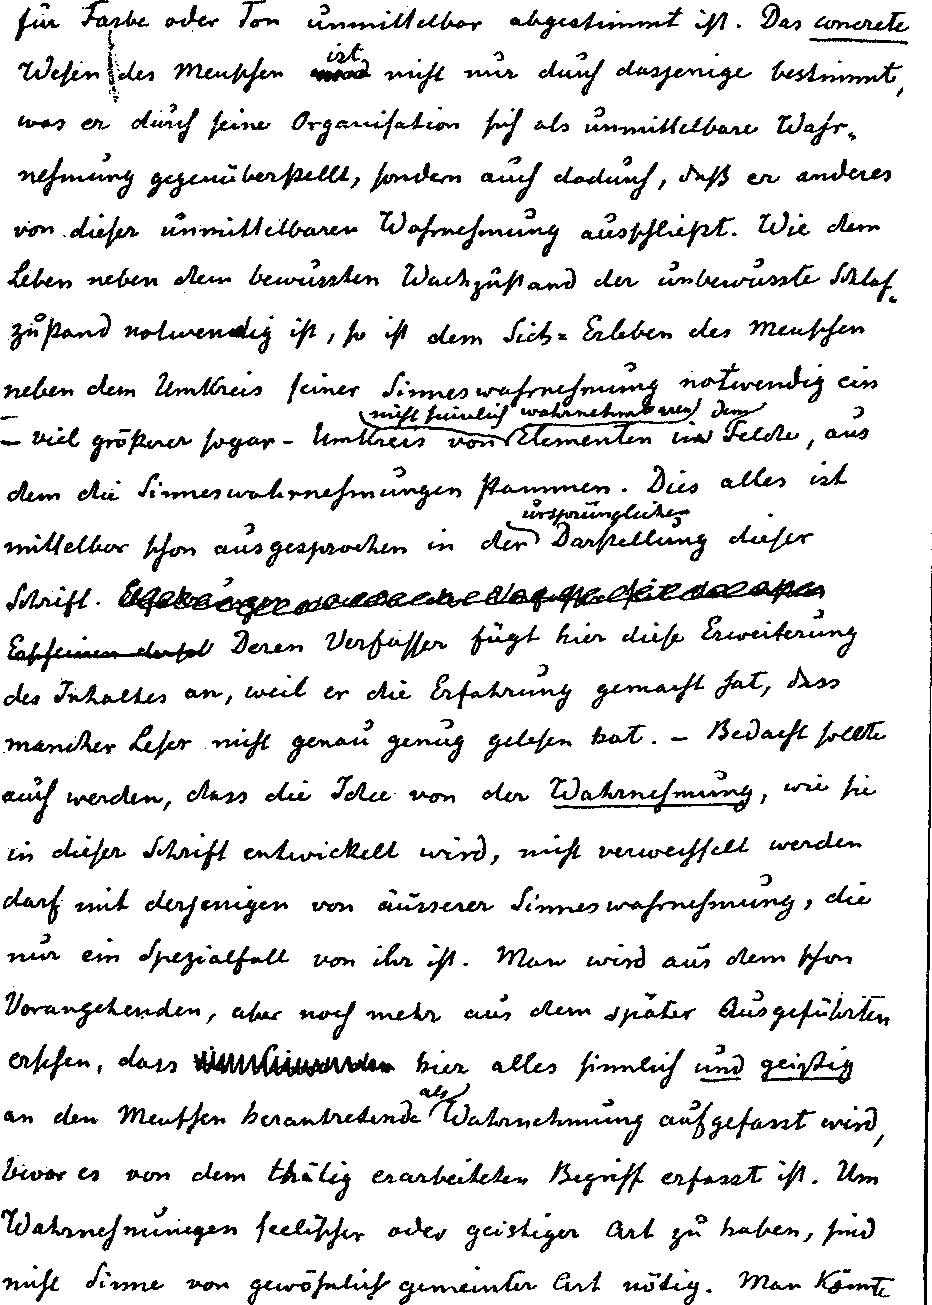 für Farbe oder Ton unmittelbar abgestimmt ist. Das concrete
Wesen des Menschen ist nicht nur durch dasjenige bestimmt,
was er durch seine Organisation sich als unmittelbare Wahr-
nehmung gegenüberstellt, sondern auch dadurch, daß er anderes
von dieser unmittelbaren Wahrnehmung ausschließt. Wie dem
Leben neben dem bewussten Wachzustand der unbewusste Schlaf-
zustand notwendig ist, so ist dem Sich-Erleben des Menschen
neben dem Umkreis seiner Sinneswahrnehmung notwendig ein
– viel größerer sogar – Umkreis von nicht sinnlich wahrnehmbaren Elementen in dem Felde, aus
dem die Sinneswahrnehmungen stammen. Dies alles ist
mittelbar schon ausgesprochen in der ursprünglichen Darstellung dieser
Schrift.
Deren Verfasser fügt hier diese Erweiterung
des Inhaltes an, weil er die Erfahrung gemacht hat, dass
mancher Leser nicht genau genug gelesen hat. – Bedacht sollte
auch werden, dass die Idee von der Wahrnehmung, wie sie
in dieser Schrift entwickelt wird, nicht verwechselt werden
darf mit derjenigen von äusserer Sinneswahrnehmung, die
nur ein Spezialfall von ihr ist. Man wird aus dem schon
Vorangehenden, aber noch mehr aus dem später Ausgeführten
ersehen, dass hier alles sinnlich und geistig
an den Menschen herantretende als Wahrnehmung aufgefasst wird,
bevor es von dem thätig erarbeiteten Begriff erfasst ist. Um
Wahrnehmungen seelischer oder geistiger Art zu haben, sind
nicht Sinne von gewöhnlich gemeinter Art nötig. Man könnte